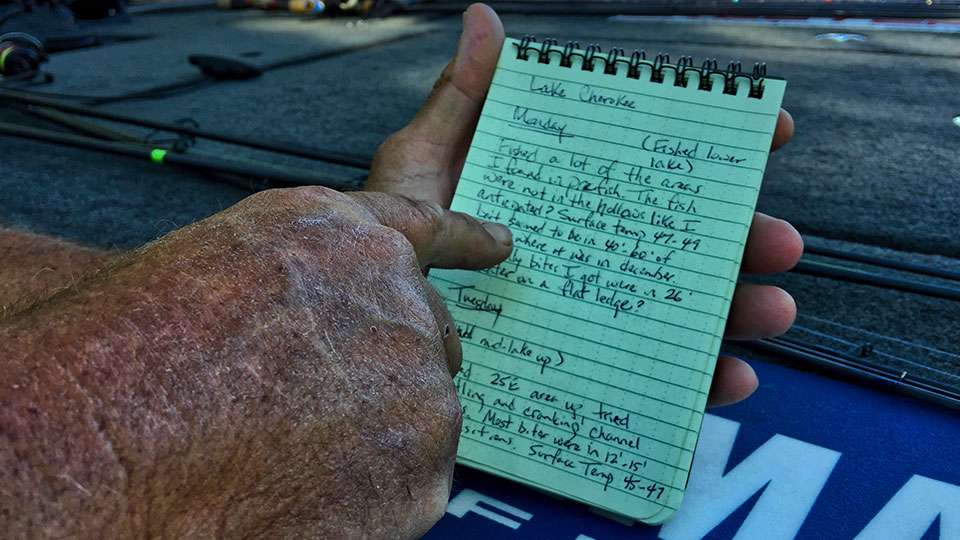 Lake Cherokee
Monday
(Fished lower
lake)
Fished a lot of the areas
I found in prefish. The fish
were not in the hollows like I
anticipated? Surface temp 47-49
bait seemed to be in 40'-60' of
where it was in december.
bites I got were in 26'
on a flat ledge?
Tuesday
mid-lake up)
25E area up tried
and cranking channel
Most bites were in 12'-15'
Surface Temp 45-47
F
MA